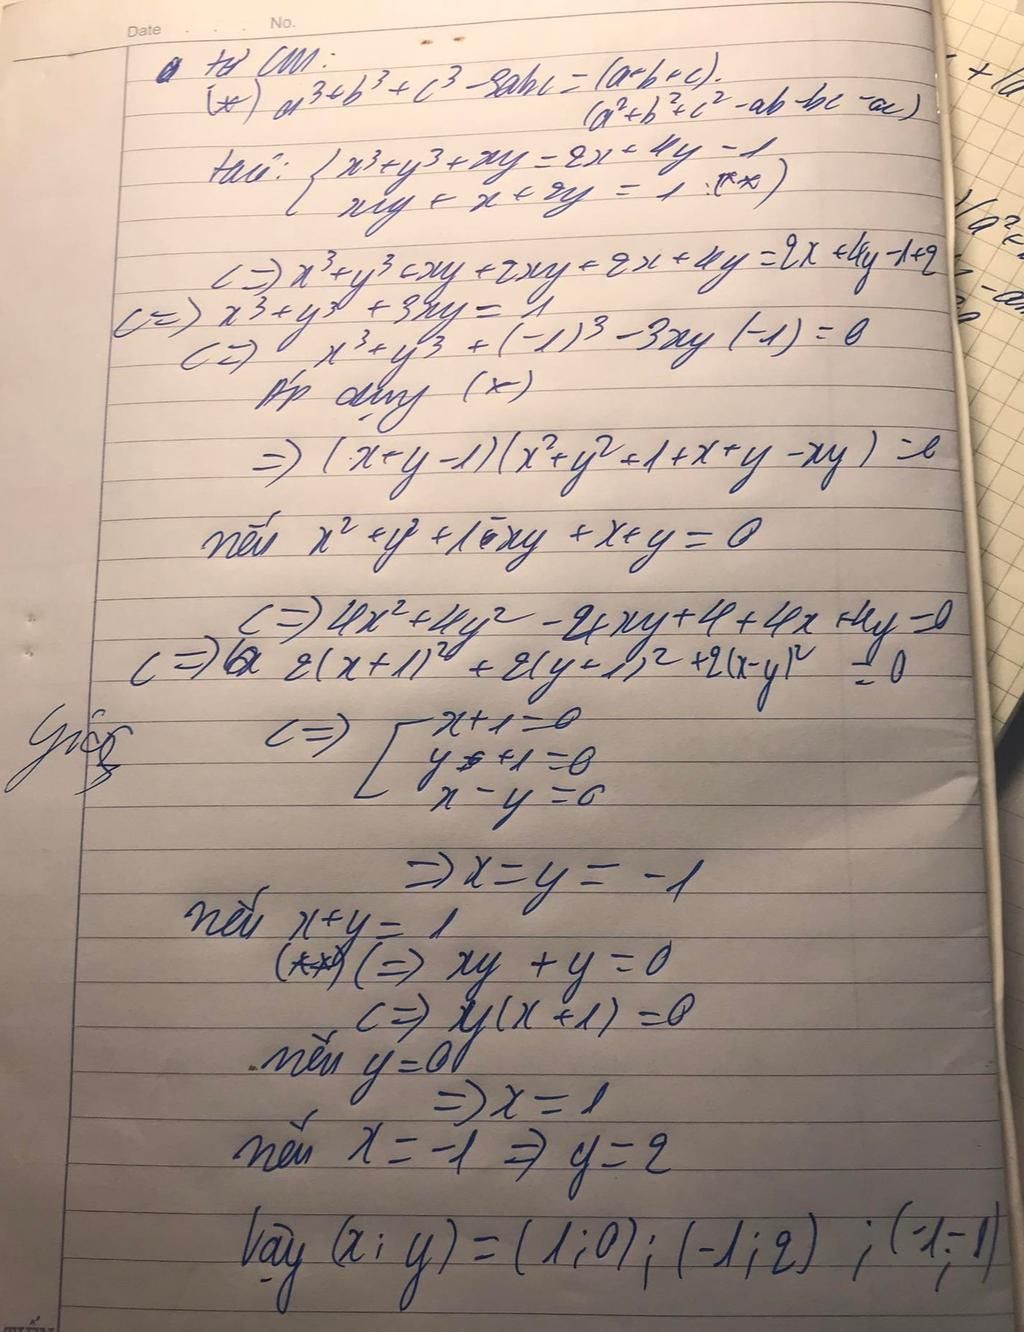 Date . . . No.
tự CM:
(*) a³+b³+c³-3abc=(a+b+c).
(a²+b²+c²-ab-bc-ac)
x³+y³+xy=2x+4y-1
xy+x+2y=1 (**)
(=) x³+y³+xy+2xy+2x+4y=2x+4y-1+2
(=) x³+y³+3xy=1
(=) x³+y³+(-1)³-3xy(-1)=0
Áp dụng (*)
=) (x+y-1)(x²+y²+1+x+y-xy)=0
nếu x²+y²+1-xy+x+y=0
(=) 4x²+4y²-4xy+4+4x+4y=0
(=) 2(x+1)²+2(y+1)²+2(x-y)²=0
(=) x+1=0
y+1=0
x-y=0
=) x=y=-1
nếu x+y=1
(**) (=) xy+y=0
(=) y(x+1)=0
nếu y=0
=) x=1
nếu x=-1 =) y=2
Vậy (x;y)=(1;0);(-1;2);(-1;-1)